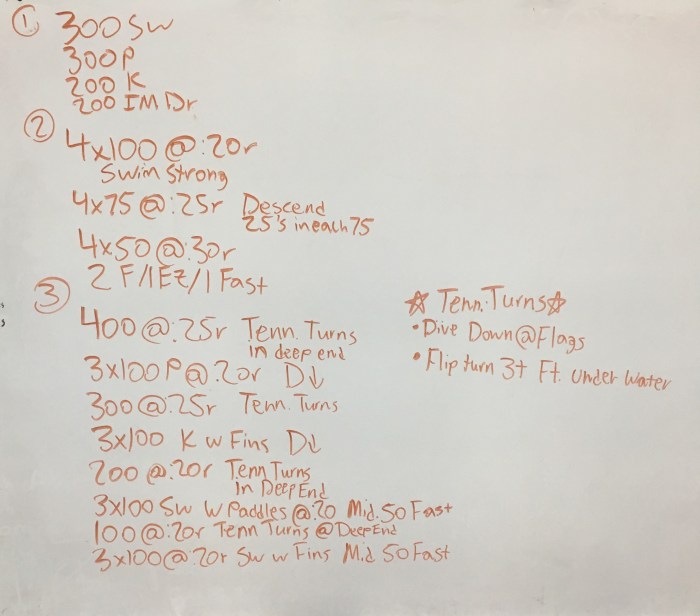 ① 300 SW
300P
200 K
200 IM Dr
② 4x100 @:20r
Swim Strong
4x75 @:25r Descend
25's in each 75
4x50 @:30r
2 F/1EZ/1 Fast
③ 400 @:25r Tenn. Turns
in deep end
3x100 P @:20r D↓
300 @:25r Tenn. Turns
3x100 K w Fins D↓
200 @:20r Tenn Turns
In Deep End
3x100 Sw w Paddles @:20 Mid.50 Fast
100 @:20r Tenn Turns @ Deep End
3x100 @:20r Sw w Fins Mid 50 Fast
☆ Tenn. Turns ☆
• Dive Down @ Flags
• Flip turn 3+ Ft. under water